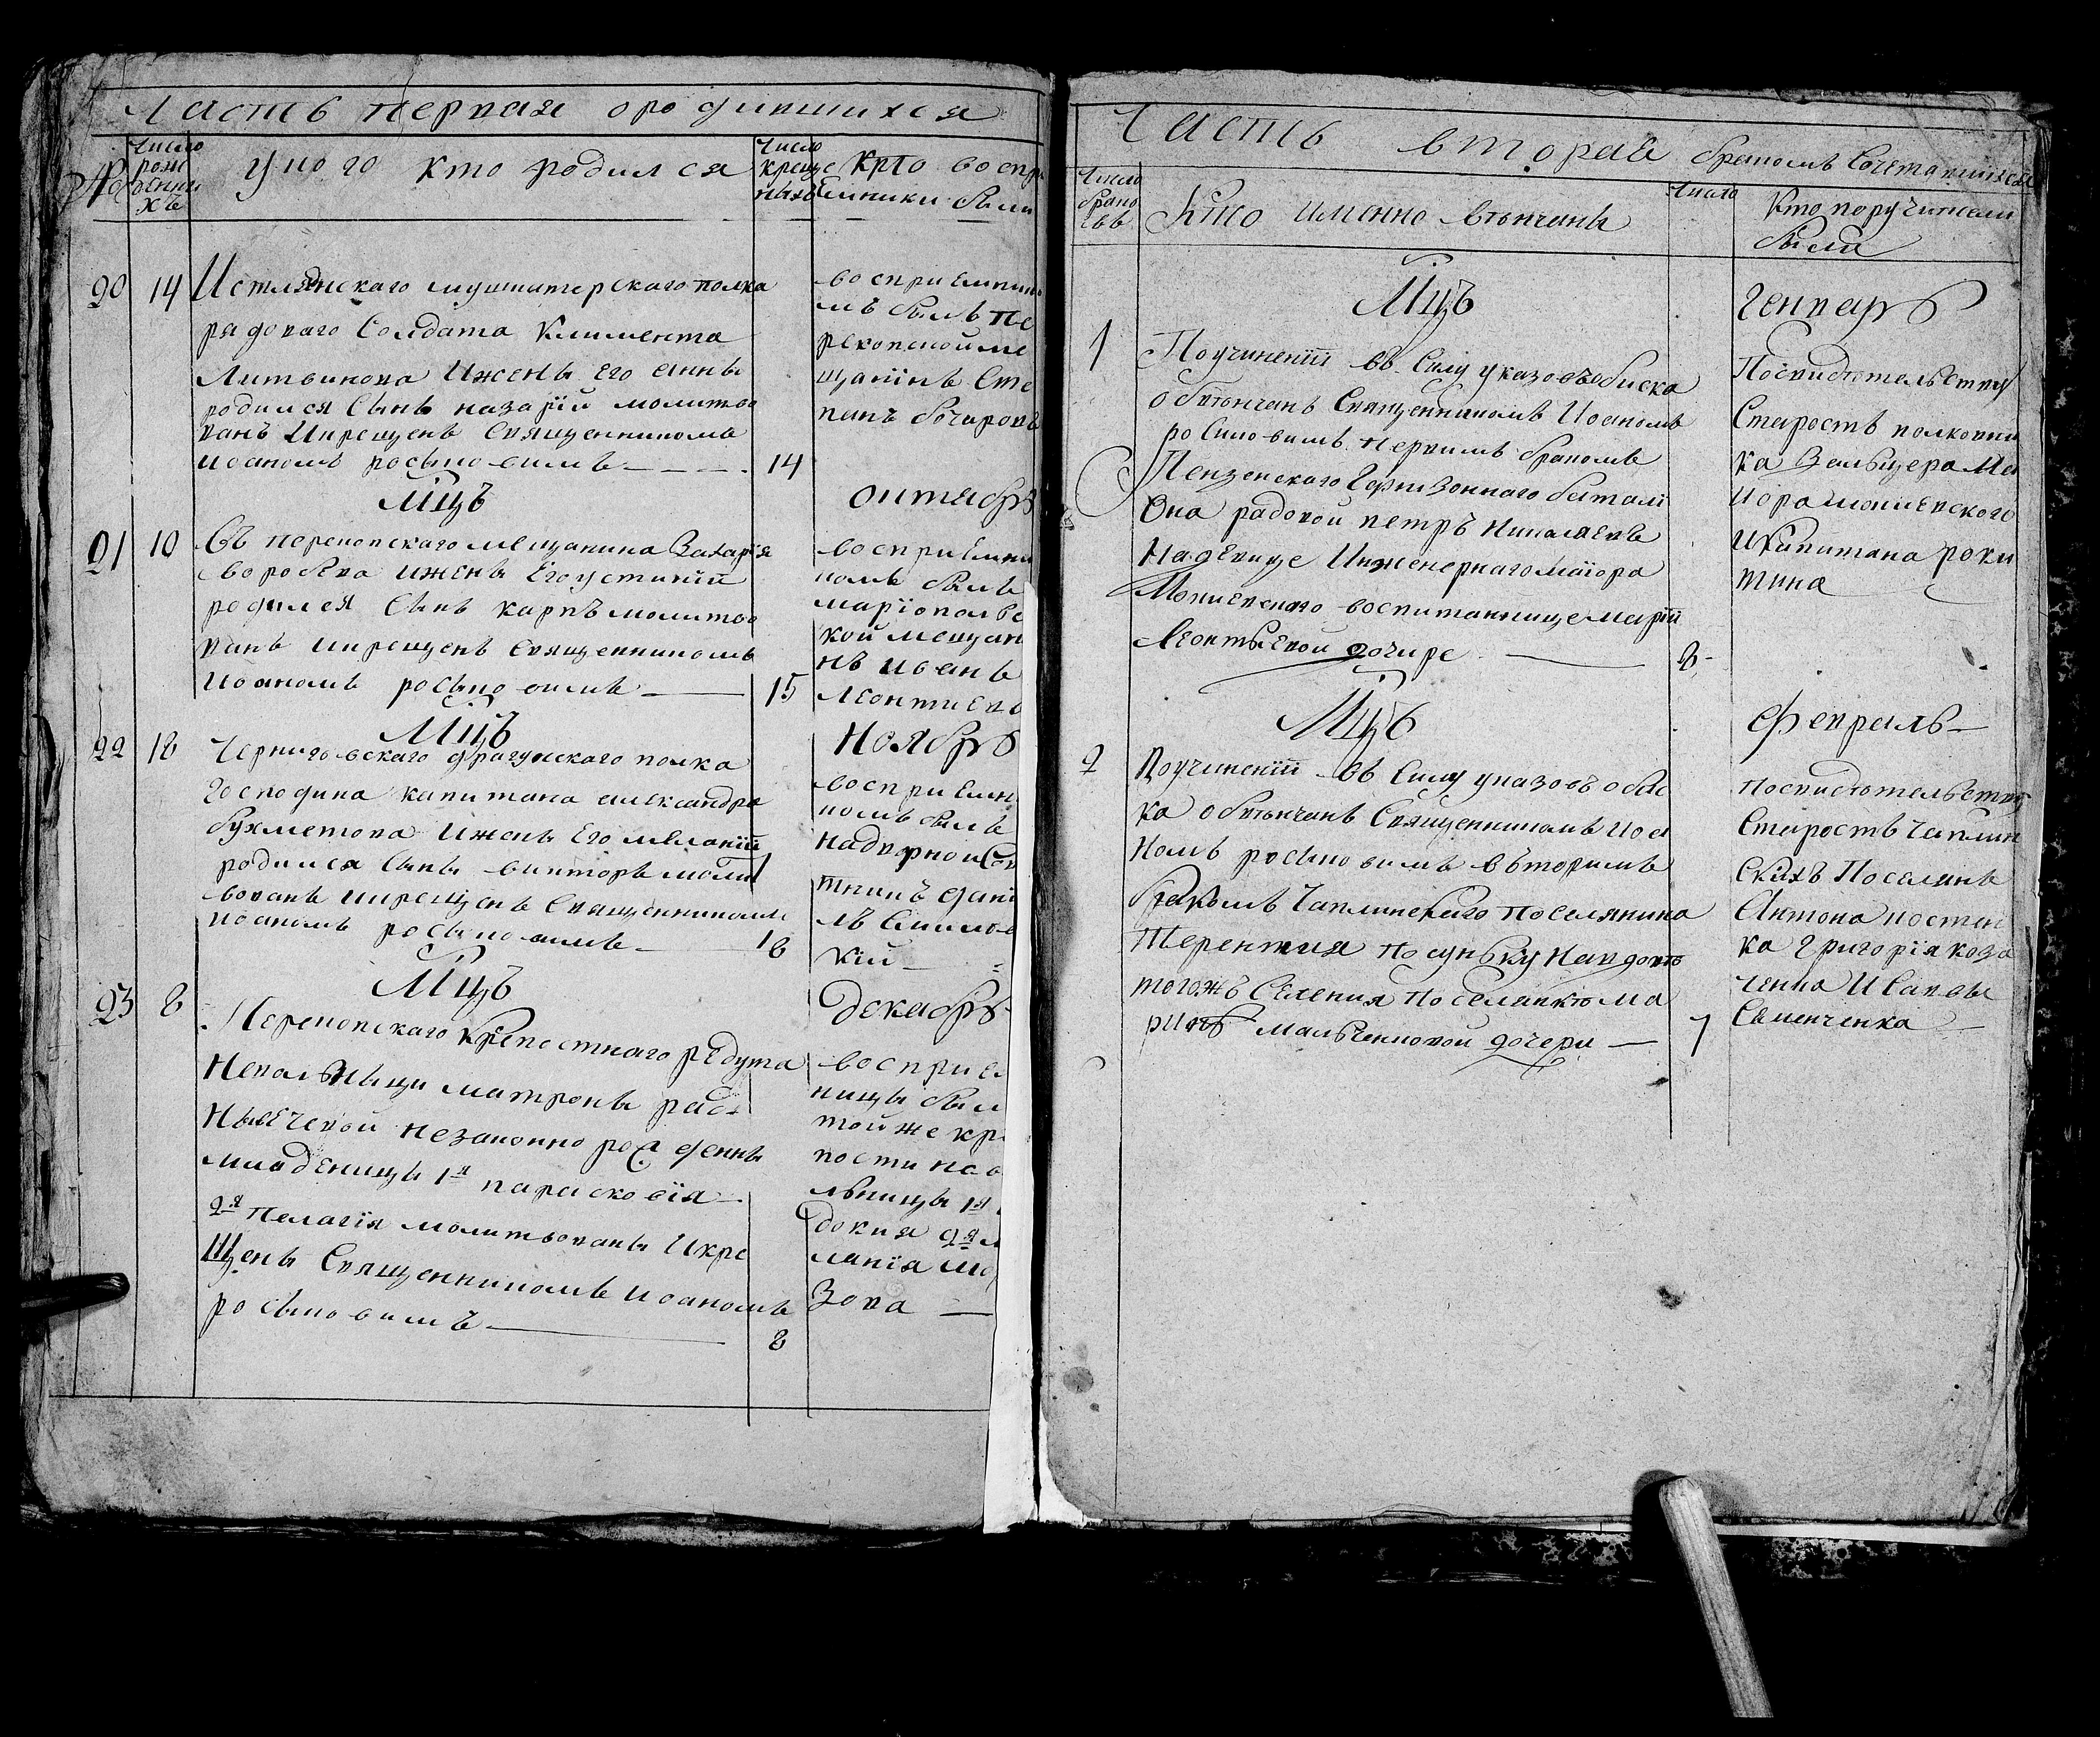 Часть первая о родившихся
№
Число рожденнихъ
у кого кто родился
Число крещеныхъ
Кто воспр
емники были
20 14 Естлянскаго мушкатерскаго полка
рядоваго Солдата Климента
Литвинова Ижены Его Анны
родился Сынъ назарій молитво
ванъ Икрещенъ Священникомъ
Иоаномъ росыновимъ 14
воспріемнико
мъ былъ Пе
рекопской ме
щанинъ Сте
панъ бочаровъ
Мцъ октябрь
21 10 Въ перекопскаго мещанина Захарія
воробьева Ижены Его устиніи
родился Сынъ карпъ молитво
ванъ Икрещенъ Священникомъ
Иоаномъ росыновимъ 15
воспріемни
комъ былъ
маріопольс
кой мещани
нъ Иванъ
Леонтиевъ
Мцъ Ноябрь
22 18 Черниговскаго драгунскаго полка
Господина капитана александра
бухметова Ижены Его меланіи
родился Сынъ викторъ молит
вованъ Икрещенъ Священникомъ
Иоаномъ росыновимъ 18
воспріемн
комъ былъ
надворной Сов
тникъ дані
лъ
кій
Мцъ Декабрь
23 8 Перекопскаго Крепостнаго редута
Невольницы матроны
незаконно рожденны
младеницы 1я парасковія
2я Пелагія молитвованы Икре
щены Священникомъ Иоаномъ
росыновимъ 8
воспріем
ницы были
той же кре
пости нево
льницы 1я
докия 2я м
ланія мо
зова
Часть вторая бракомъ Сочетавшихся
Число браковъ
Кто именно венчаны
Число
Кто поручители
были
Мцъ Генварь
1 Поучиненіи въ Силу указовъ обиска
обвѣнчанъ Священникомъ Иоаномъ
росиновимъ первимъ бракомъ
Пензенскаго Гарнизоннаго баталі
Она радовой петръ Николаевъ
Надевице Инженернаго маіора
Мокиевскаго воспитаннице маріи
Леонтьевой дочире 8
Посвидѣтельству
Старостъ полковни
ка Зельцера Ма
иора мокиевского
Икапитана роки
тина
Мцъ февраль
2 Поучиненіи въ Силу указовъ обис
ка обвѣнчанъ Священникомъ Иоа
номъ росыновимъ вѣторимъ
бракомъ Чаплинскаго поселянина
Терентия Посунку Навдовѣ
тогожъ Селения Поселанкѣ ма
ринѣ мальченковой дочери 7
посвидѣтельству
Старостъ Чаплин
Скихъ Поселянъ
Антона костен
ка Григорія коза
ченка Исаввы
Семенченка